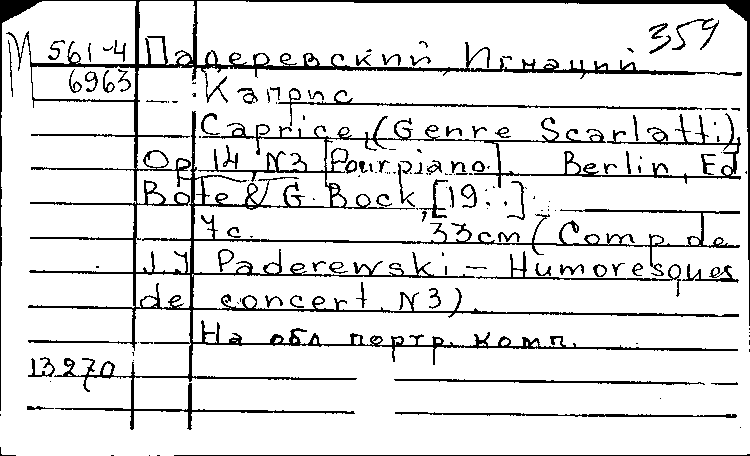 359
М 561-4 Падеревский, Игнаций
6963 Каприс
Caprice, (Genre Scarlatti),
Op. 14, N3 [Pour piano]. Berlin, Ed.
Bote & G. Bock, [19..].
7 c. 33 cm (Comp. de
J. J. Paderewski – Humoresques
de concert, N3).
На обл. портр. комп.
13270